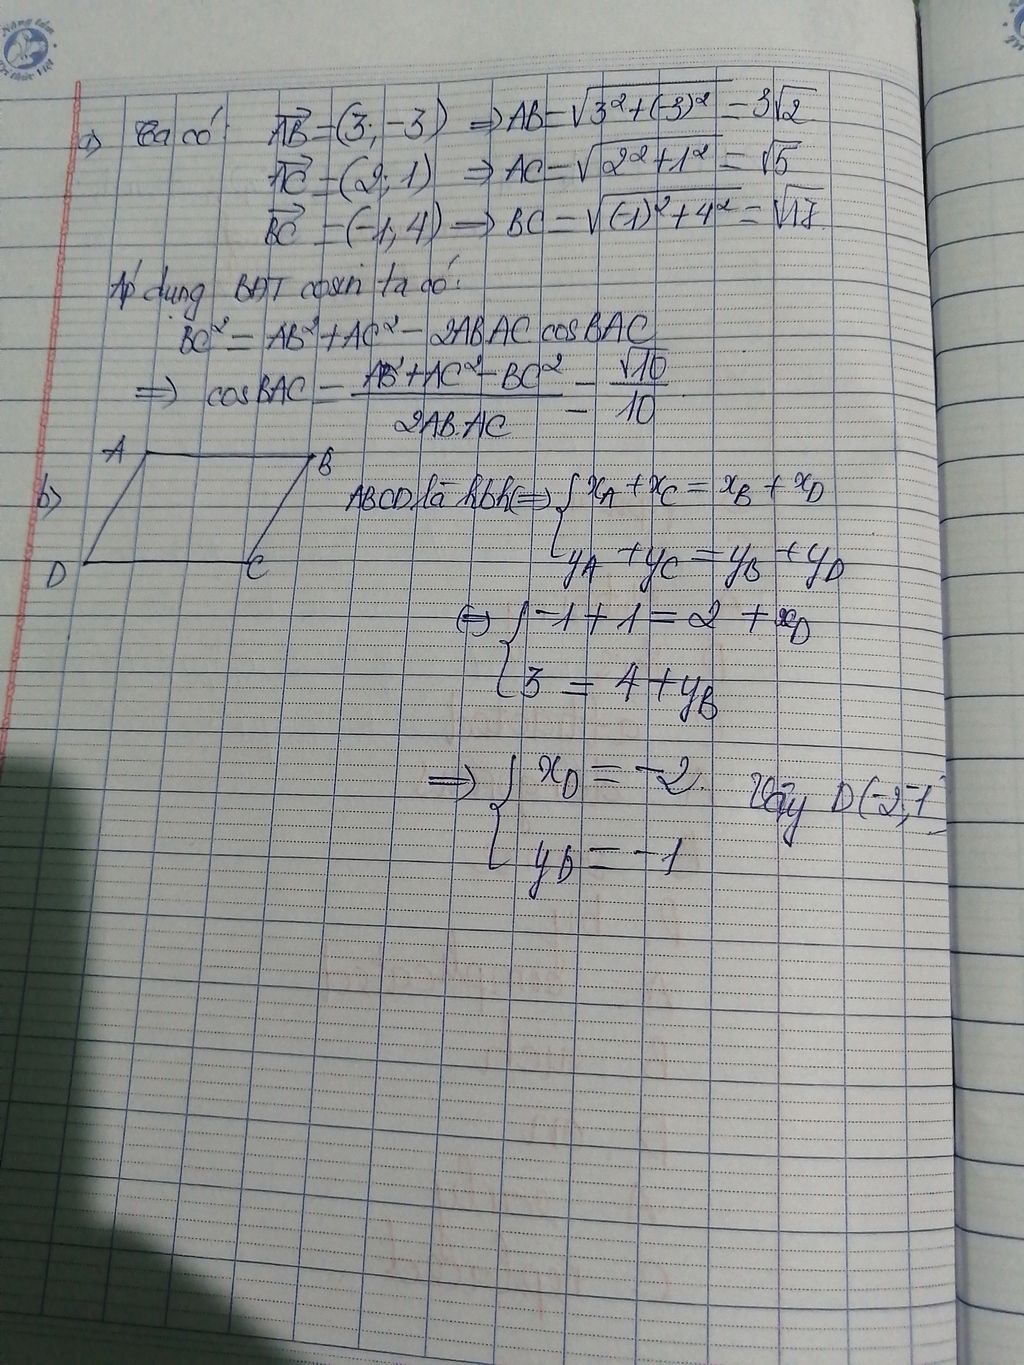 a) Ta có: AB = (3; -3) ⇒ AB = √3²+(-3)² = 3√2
AC = (2; 1) ⇒ AC = √2²+1² = √5
BC = (-1, 4) ⇒ BC = √(-1)²+4² = √17
Áp dụng BĐT cosin ta có:
BC² = AB² + AC² - 2AB.AC cosBAC
⇒ cosBAC = (AB²+AC²-BC²)/(2AB.AC) = √10/10
A B
b) ABCD là hbh ⇔ { xA + xC = xB + xD
D C yA + yC = yB + yD
⇔ { -1 + 1 = 2 + xD
3 = 4 + yB
⇒ { xD = -2 Vậy D(-2;-1)
yD = -1